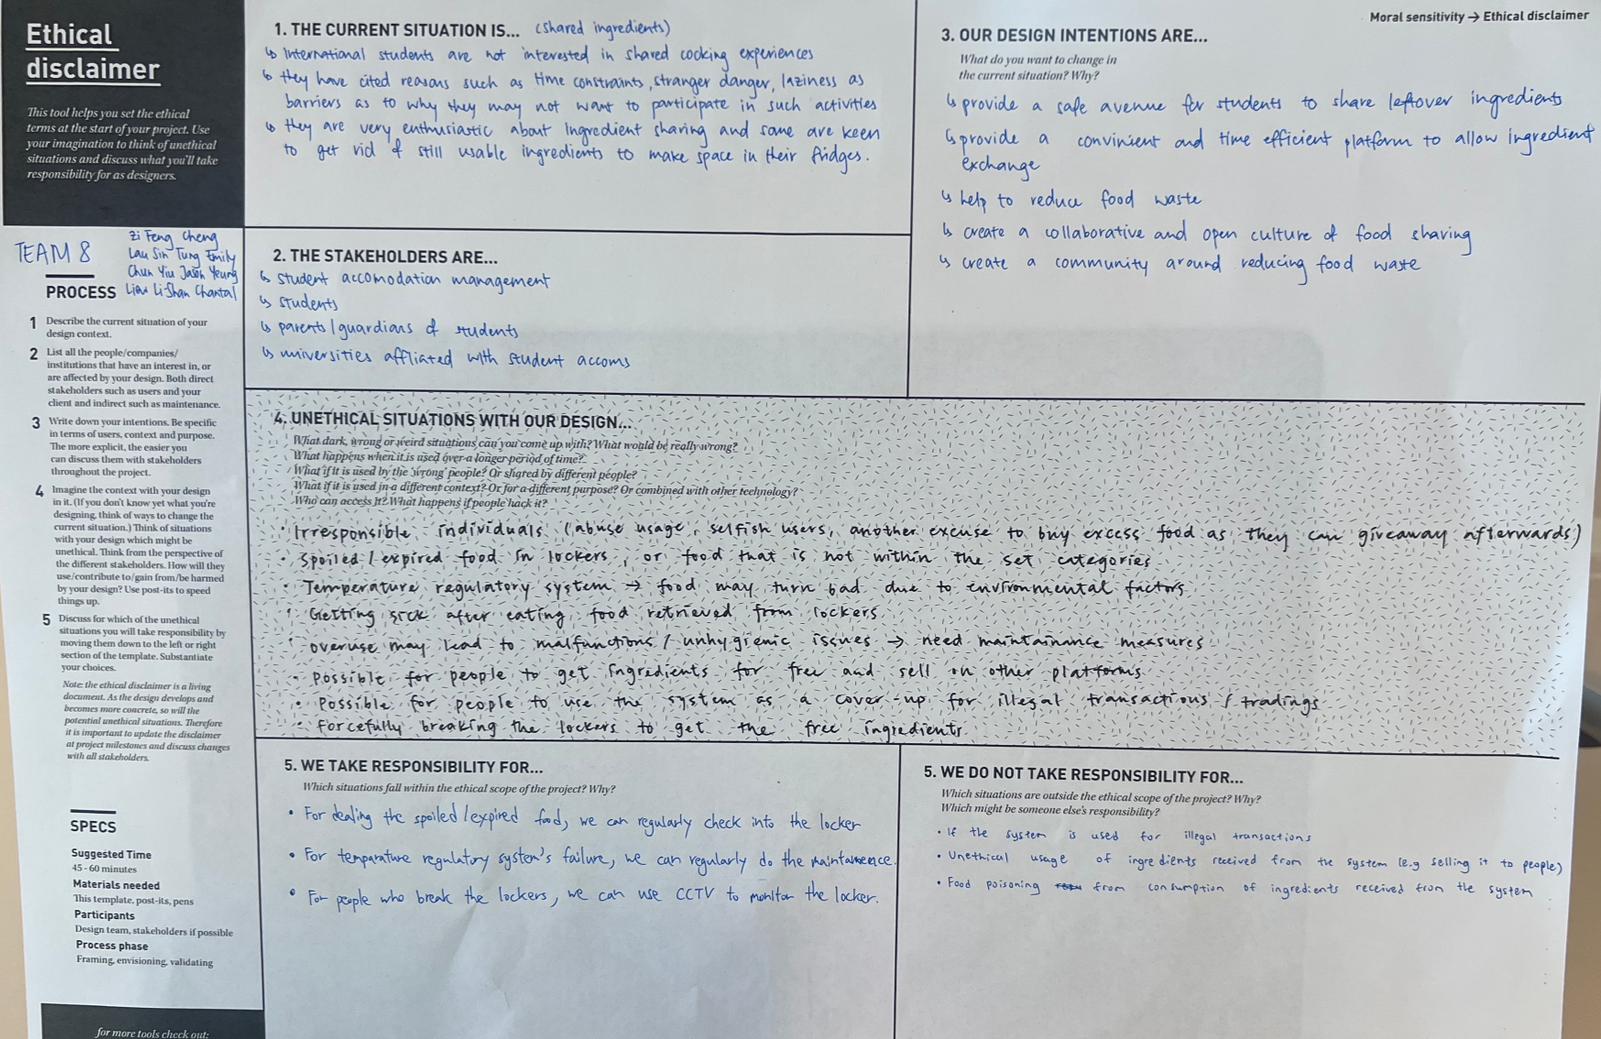 Ethical
disclaimer
This tool helps you set the ethical
terms at the start of your project. Use
your imagination to think of unethical
situations and discuss what you'll take
responsibility for as designers.
TEAM 8
Zi Feng Cheng
Lau Sin Tung Emily
Chun Yiu Jason Yeung
Liew Li-Shan Chantal
PROCESS
1 Describe the current situation of your
design context.
2 List all the people/companies/
institutions that have an interest in, or
are affected by your design. Both direct
stakeholders such as users and your
client and indirect such as maintenance.
3 Write down your intentions. Be specific
in terms of users, context and purpose.
The more explicit, the easier you
can discuss them with stakeholders
throughout the project.
4 Imagine the context with your design
in it. (If you don't know yet what you're
designing, think of ways to change the
current situation.) Think of situations
with your design which might be
unethical. Think from the perspective of
the different stakeholders. How will they
use/contribute to/gain from/be harmed
by your design? Use post-its to speed
things up.
5 Discuss for which of the unethical
situations you will take responsibility by
moving them down to the left or right
section of the template. Substantiate
your choices.
Note: the ethical disclaimer is a living
document. As the design develops and
becomes more concrete, so will the
potential unethical situations. Therefore
it is important to update the disclaimer
at project milestones and discuss changes
with all stakeholders.
SPECS
Suggested Time
45-60 minutes
Materials needed
This template, post-its, pens
Participants
Design team, stakeholders if possible
Process phase
Framing, envisioning, validating
for more tools check out:
1. THE CURRENT SITUATION IS... (shared ingredients)
↳ International students are not interested in shared cooking experiences
↳ they have cited reasons such as time constraints, stranger danger, laziness as
barriers as to why they may not want to participate in such activities
↳ they are very enthusiastic about Ingredient sharing and some are keen
to get rid of still usable ingredients to make space in their fridges.
2. THE STAKEHOLDERS ARE...
↳ student accomodation management
↳ students
↳ parents/guardians of students
↳ universities affliated with student accoms
Moral sensitivity → Ethical disclaimer
3. OUR DESIGN INTENTIONS ARE...
What do you want to change in
the current situation? Why?
↳ provide a safe avenue for students to share leftover ingredients
↳ provide a convinient and time efficient platform to allow ingredient
exchange
↳ help to reduce food waste
↳ create a collaborative and open culture of food sharing
↳ create a community around reducing food waste
4. UNETHICAL SITUATIONS WITH OUR DESIGN...
What dark, wrong or weird situations can you come up with? What would be really wrong?
What happens when it is used over a longer period of time?
What if it is used by the 'wrong' people? Or shared by different people?
What if it is used in a different context? Or for a different purpose? Or combined with other technology?
Who can access it? What happens if people hack it?
• Irresponsible individuals (abuse usage, selfish users, another excuse to buy excess food as they can giveaway afterwards)
• Spoiled / expired food in lockers, or food that is not within the set categories
• Temperature regulatory system → food may turn bad due to environmental factors
• Getting sick after eating food retrieved from lockers
• overuse may lead to malfunctions / unhygienic issues → need maintainance measures
• Possible for people to get ingredients for free and sell on other platforms
• Possible for people to use the system as a cover-up for illegal transactions / tradings
• Forcefully breaking the lockers to get the free ingredients
5. WE TAKE RESPONSIBILITY FOR...
Which situations fall within the ethical scope of the project? Why?
• For dealing the spoiled/expired food, we can regularly check into the locker
• For temparature regulatory system's failure, we can regularly do the maintainence.
• For people who break the lockers, we can use CCTV to monitor the locker.
5. WE DO NOT TAKE RESPONSIBILITY FOR...
Which situations are outside the ethical scope of the project? Why?
Which might be someone else's responsibility?
• If the system is used for illegal transactions
• Unethical usage of ingredients received from the system (e.g selling it to people)
• Food poisoning from consumption of ingredients received from the system